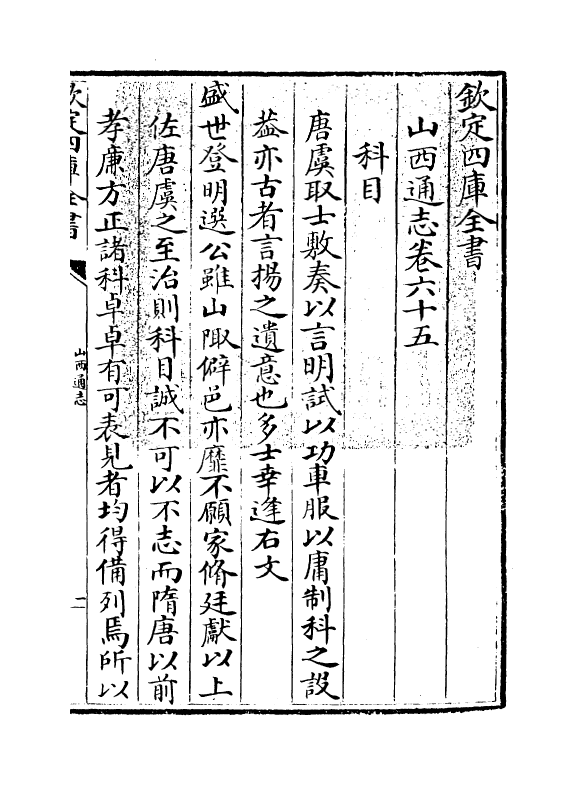 欽定四庫全書
山西通志卷六十五
科目
唐虞取士敷奏以言明試以功車服以庸制科之設
葢亦古者言揚之遺意也多士幸逢右文
盛世登明選公雖山陬僻邑亦靡不願家脩廷獻以上
佐唐虞之至治則科目誠不可以不志而隋唐以前
孝廉方正諸科卓卓有可表見者均得備列焉所以
欽定四庫全書
山西通志